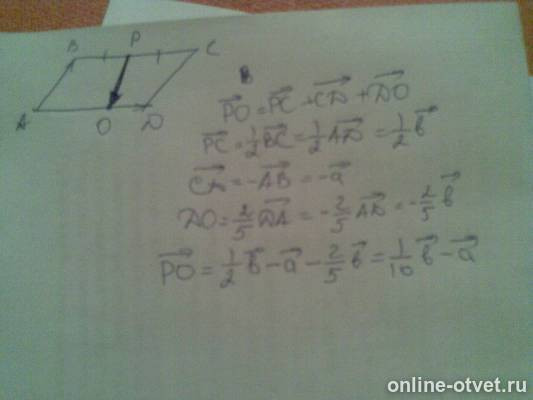 B P C
A O D
B
$\overrightarrow{PO} = \overrightarrow{PC} + \overrightarrow{CD} + \overrightarrow{DO}$
$\overrightarrow{PC} = \frac{1}{2}\overrightarrow{BC} = \frac{1}{2}\overrightarrow{AD} = \frac{1}{2}\overrightarrow{b}$
$\overrightarrow{CD} = -\overrightarrow{AB} = -\overrightarrow{a}$
$DO = \frac{2}{5}\overrightarrow{DA} = -\frac{2}{5}\overrightarrow{AD} = -\frac{2}{5}\overrightarrow{b}$
$\overrightarrow{PO} = \frac{1}{2}\overrightarrow{b} - \overrightarrow{a} - \frac{2}{5}\overrightarrow{b} = \frac{1}{10}\overrightarrow{b} - \overrightarrow{a}$
online-otvet.ru